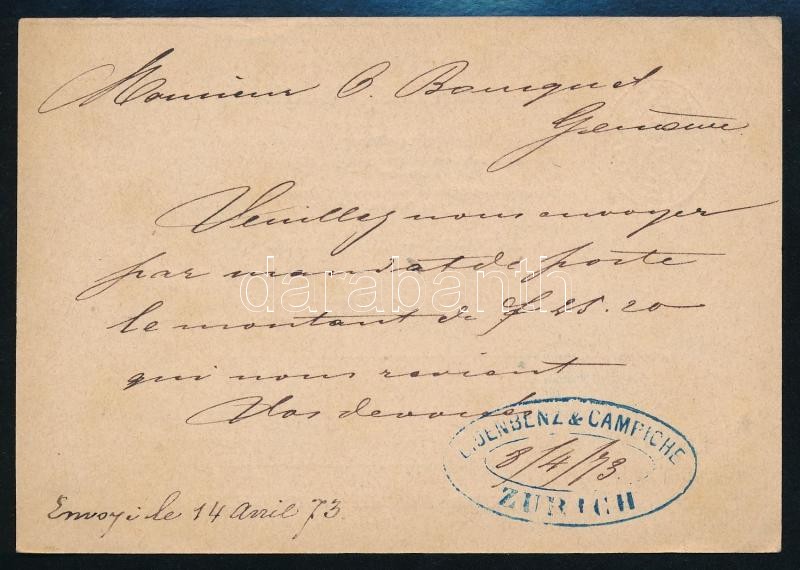 Monsieur C. Bouquet
Genève
Veuillez nous envoyer
par mandat de poste
le montant de f 45.20
qui nous revient
Vos dévoués
JENBENZ & CAMPICHE
8/4/73
ZURICH
Envoyé le 14 Avril 73
darabanth